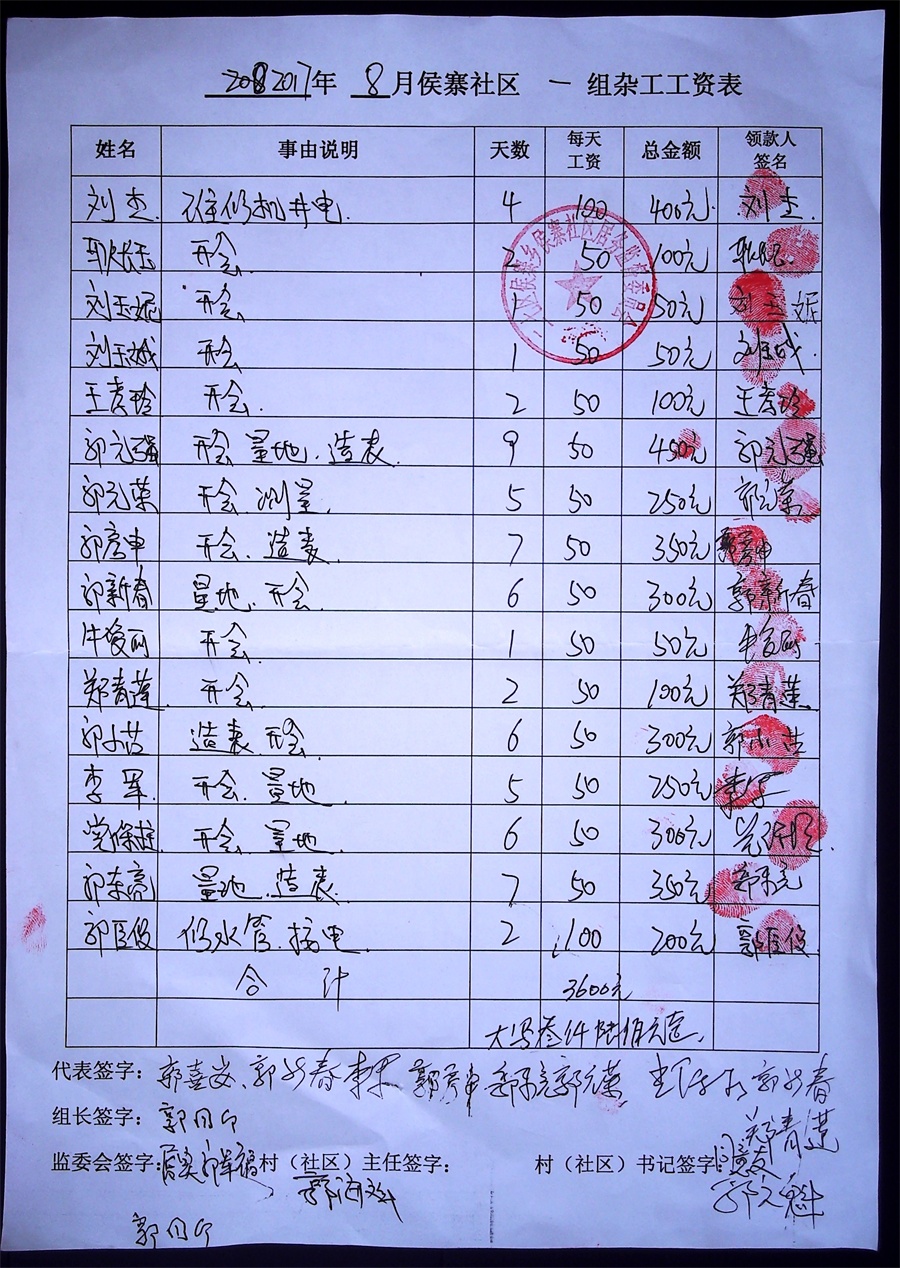 2017年 8月侯寨社区 一 组杂工工资表
姓名 事由说明 天数 每天工资 总金额 领款人签名
刘杰 维修机井电 4 100 400元 刘杰
开会 2 50 100元
刘玉妮 开会 1 50 50元 刘玉妮
刘玉城 开会 1 50 50元 刘玉城
王彦玲 开会 2 50 100元 王彦玲
郭元强 开会 量地 造表 9 50 450元 郭元强
郭元荣 开会 测量 5 50 250元 郭元荣
郭彦申 开会 造表 7 50 350元 郭彦申
郭新春 量地 开会 6 50 300元 郭新春
开会 1 50 50元
郑青莲 开会 2 50 100元 郑青莲
造表 开会 6 50 300元
李军 开会 量地 5 50 250元 李军
党保柱 开会 量地 6 50 300元
郭东亮 量地 造表 7 50 350元 郭东亮
郭臣俊 修水管 接电 2 100 200元 郭臣俊
合计 3600元
大写叁仟陆佰元整
代表签字: 郭喜安 郭新春 李军 郭彦申 郭东亮 郭元荣 郭新春
郑青莲
组长签字:
监委会签字: 村（社区）主任签字: 村（社区）书记签字: